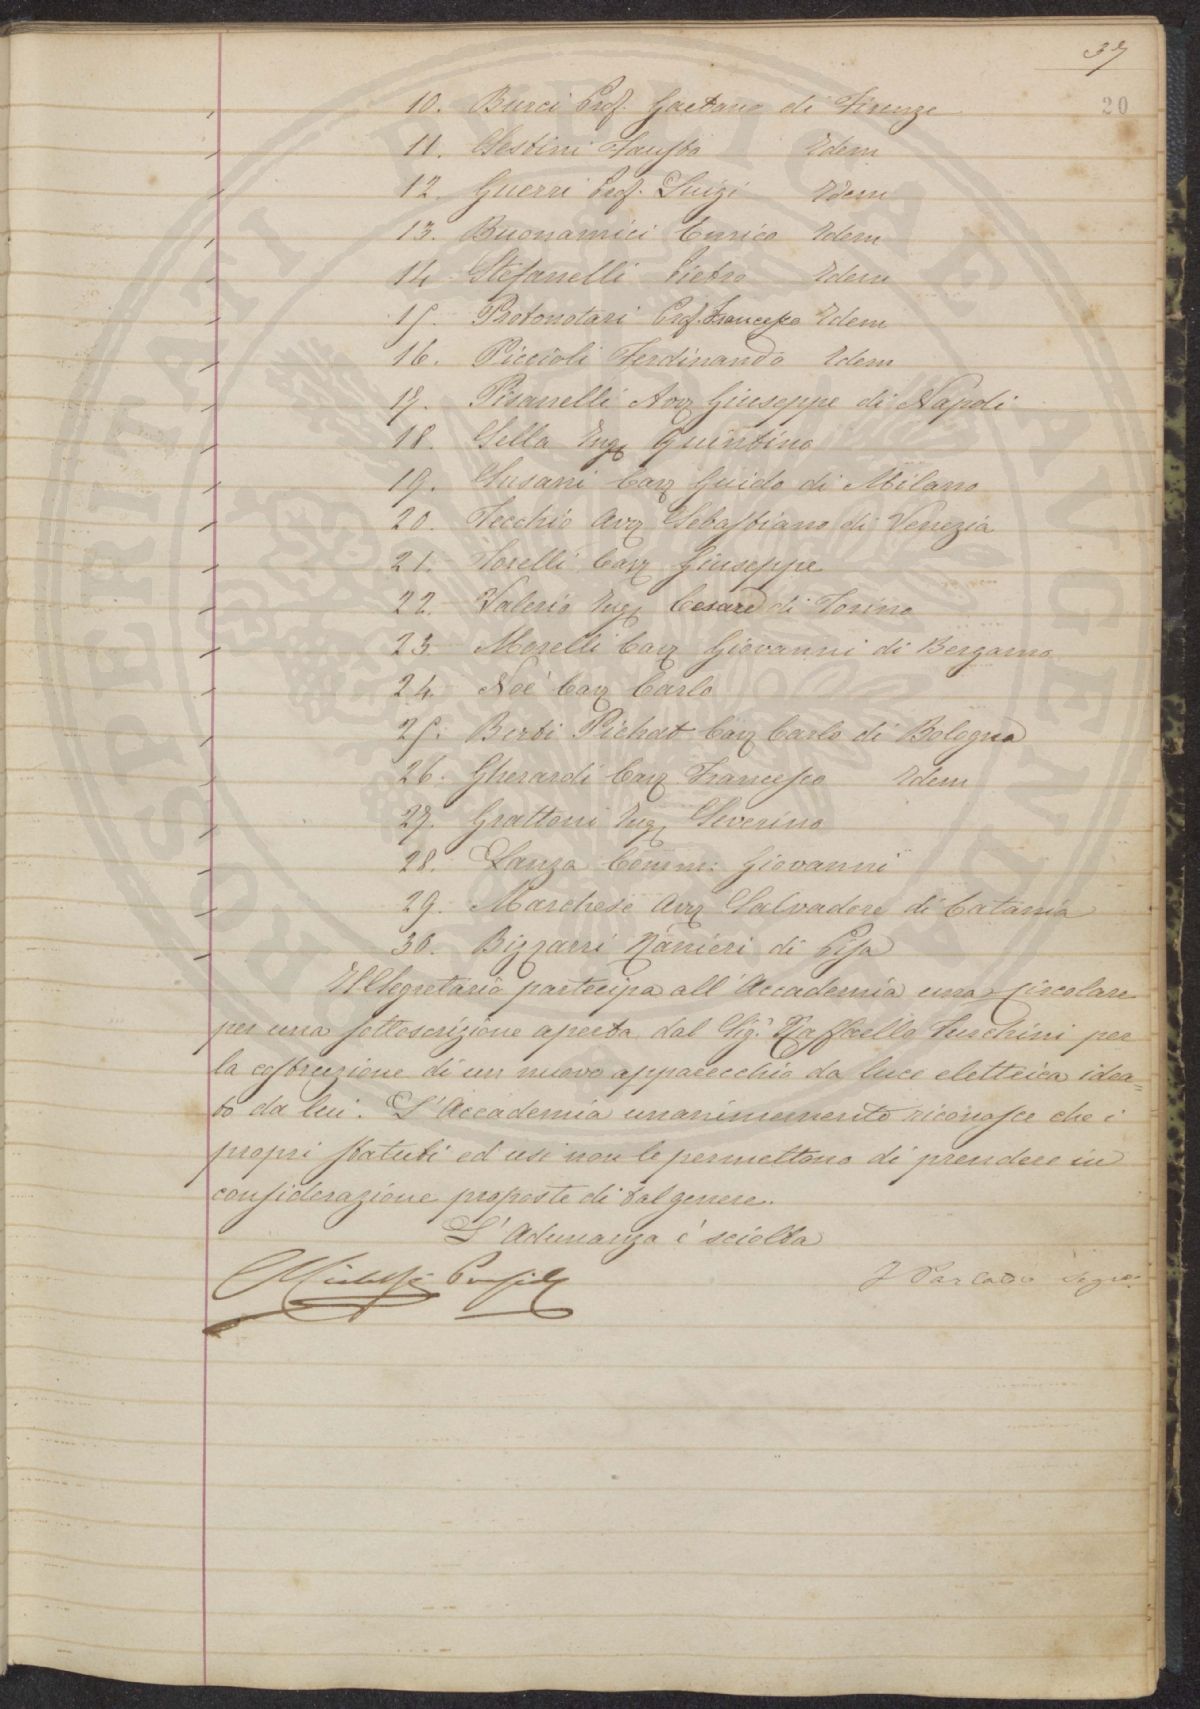 37
20
10. Burci Prof. Gaetano di Firenze
11. Sestini Fausto Idem
12. Guerri Prof. Luigi Idem
13. Buonamici Enrico Idem
14 Stefanelli Pietro Idem
15. Protonotari Prof. Francesco Idem
16. Piccioli Ferdinando Idem
17. Pisanelli Avv Giuseppe di Napoli
18. Sella Ing Quintino
19. Susani Cav Guido di Milano
20. Tecchio Avv Sebastiano di Venezia
21. Torelli Cav Giuseppe
22. Valerio Ing Cesare di Torino
23. Morelli Cav Giovanni di Bergamo
24. Noè Cav Carlo
25: Berti Pichat Cav Carlo di Bologna
26. Gherardi Cav Francesco Idem
27. Grattoni Ing Severino
28. Lanza Comm: Giovanni
29. Marchese Avv Salvadore di Catania
30. Bizzarri Ranieri di Pisa
Il Segretario partecipa all'Accademia una circolare
per una sottoscrizione aperta dal Sig.r Raffaello Turchini per
la costruzione di un nuovo apparecchio da luce elettrica idea=
to da lui. L'Accademia unanimemente riconosce che i
propri statuti ed usi non le permettono di prendere in
considerazione proposte di tal genere.
L'Adunanza è sciolta
Segre.
PROSPERITATI PUBLICAE AUGENDAE